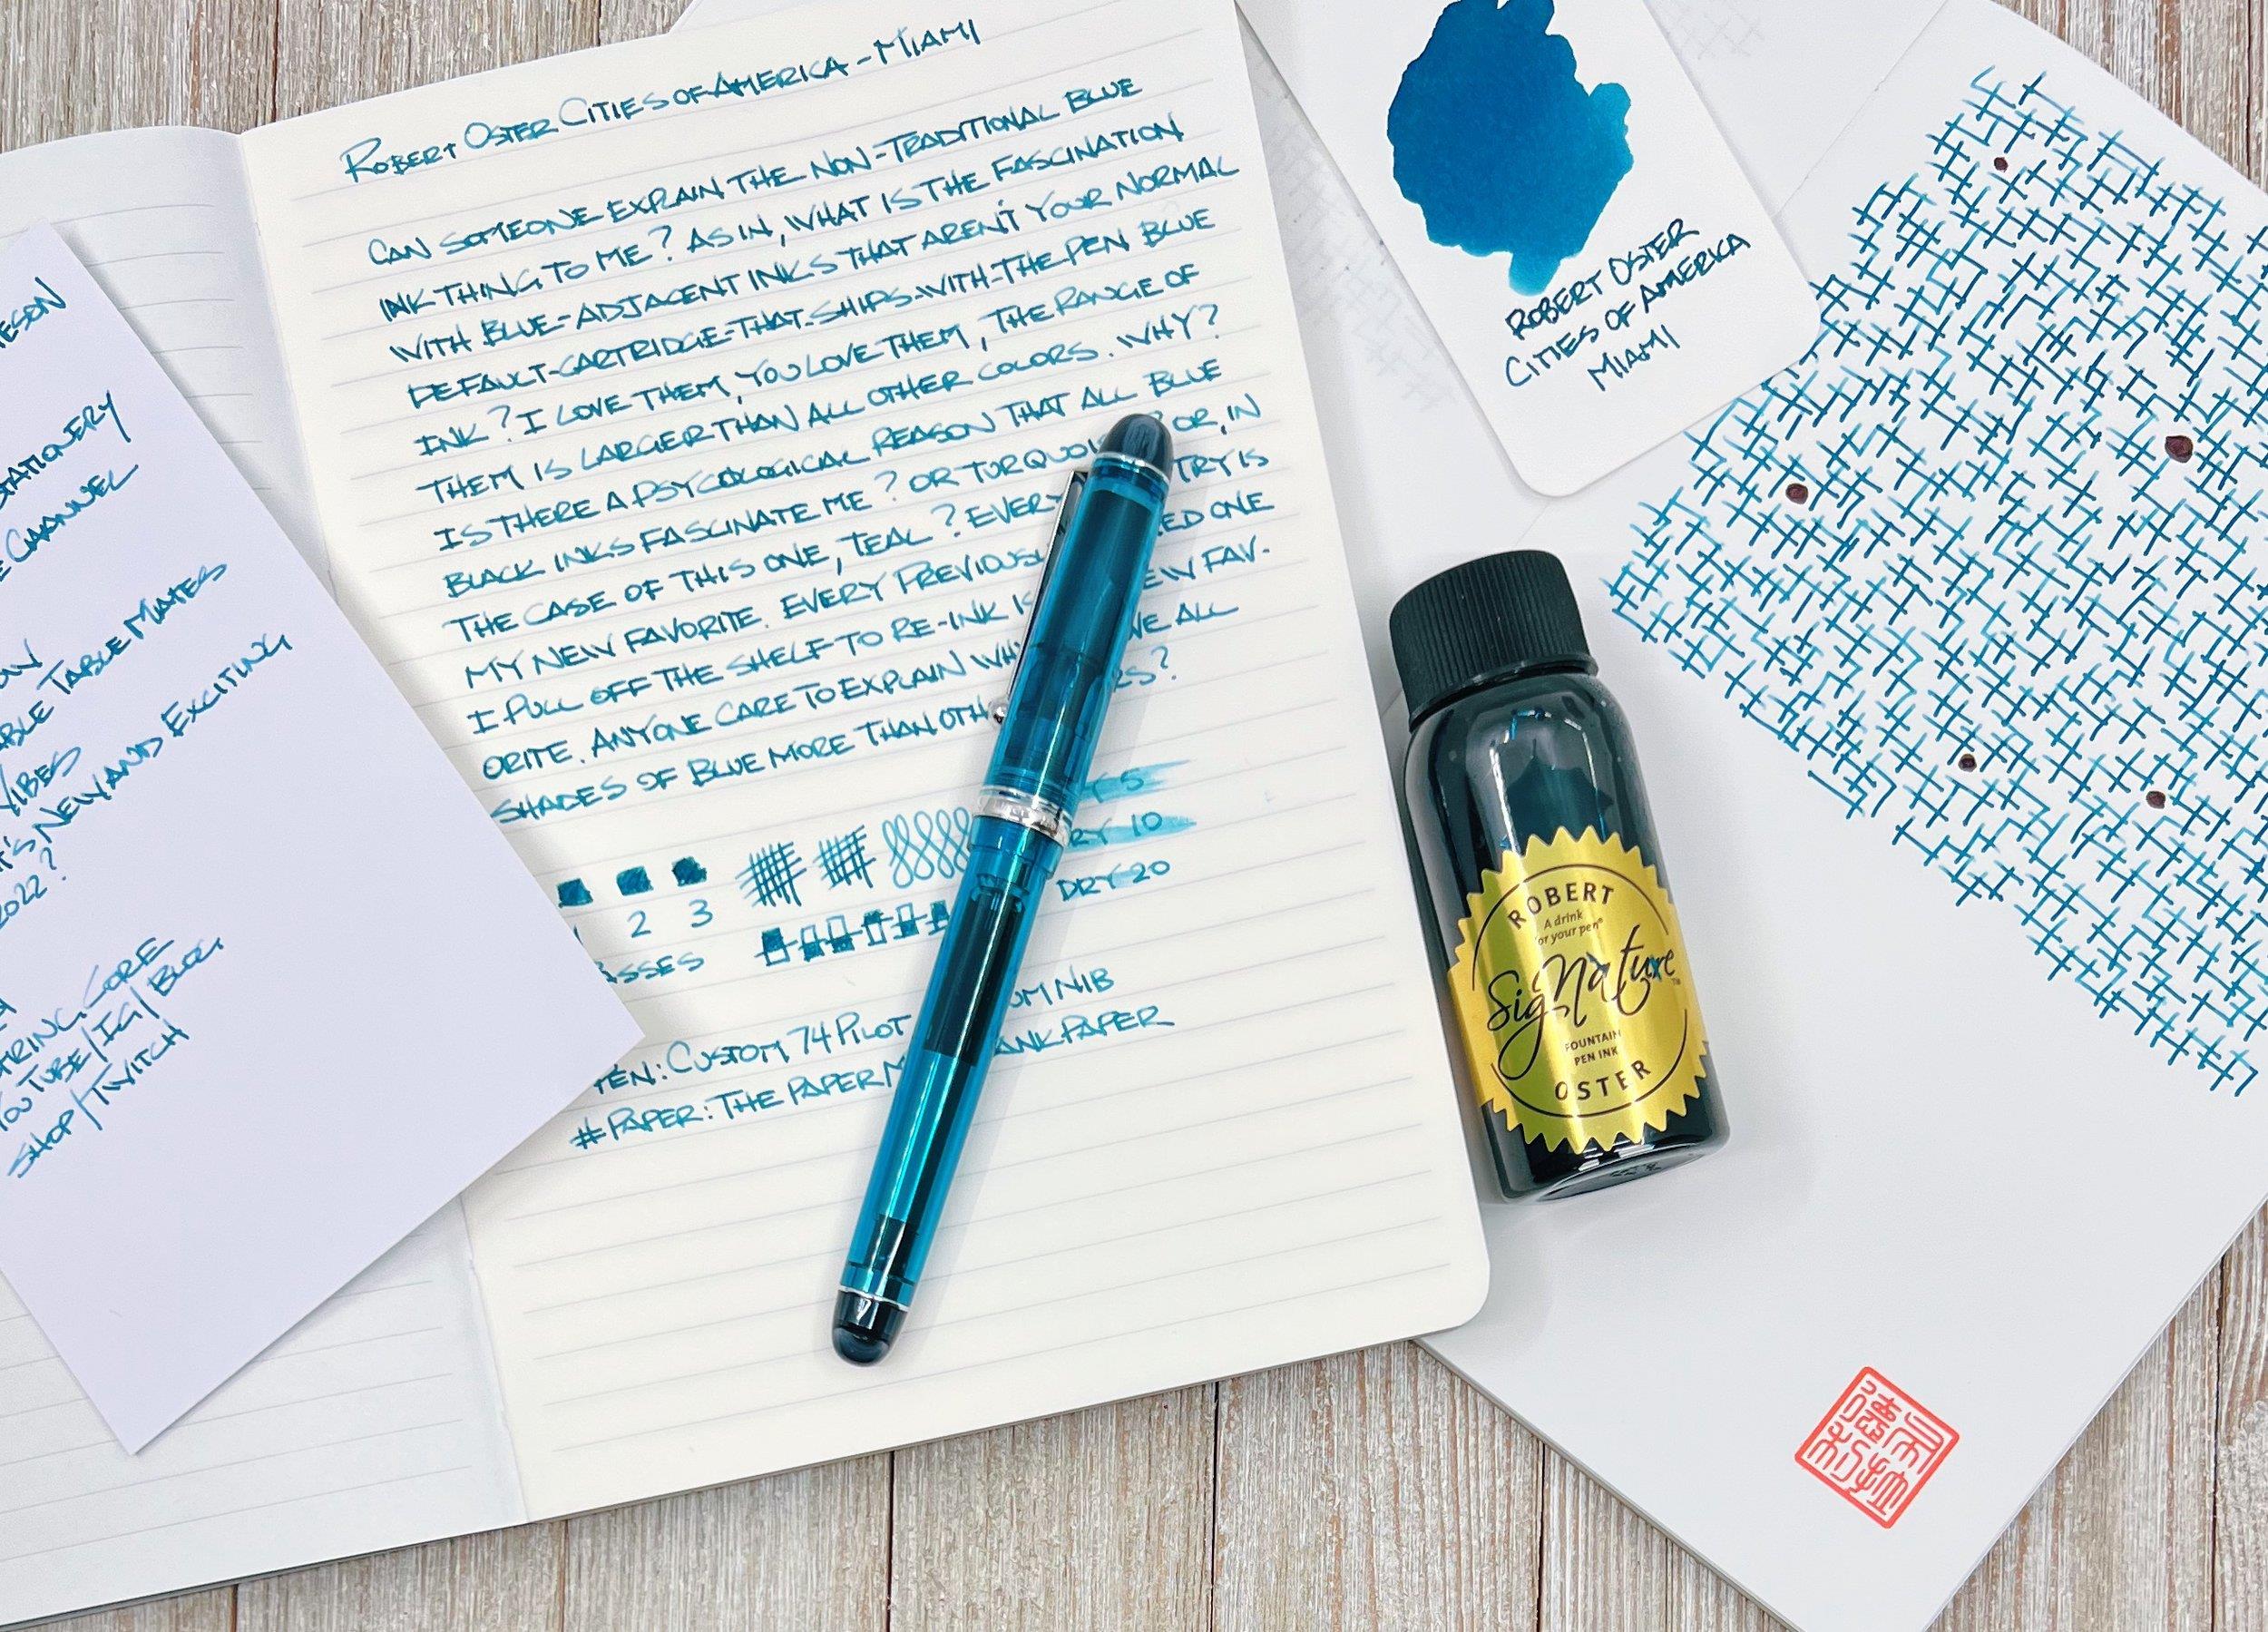 ROBERT OSTER CITIES OF AMERICA - MIAMI
CAN SOMEONE EXPLAIN THE NON-TRADITIONAL BLUE
INK THING TO ME? AS IN, WHAT IS THE FASCINATION
WITH BLUE-ADJACENT INKS THAT AREN'T YOUR NORMAL
DEFAULT-CARTRIDGE-THAT-SHIPS-WITH-THE PEN BLUE
INK? I LOVE THEM, YOU LOVE THEM, THE RANGE OF
THEM IS LARGER THAN ALL OTHER COLORS. WHY?
IS THERE A PSYCOLOGICAL REASON THAT ALL BLUE
BLACK INKS FASCINATE ME? OR TURQUOIS OR, IN
THE CASE OF THIS ONE, TEAL? EVERY TRY IS
MY NEW FAVORITE. EVERY PREVIOUSL ED ONE
I PULL OFF THE SHELF TO RE-INK IS EW FAV-
ORITE. ANYONE CARE TO EXPLAIN WHY WE ALL
SHADES OF BLUE MORE THAN OTH RS?
Y 5
RY 10
DRY 20
2 3
ASSES
PEN: CUSTOM 74 PILOT UM NIB
# PAPER: THE PAPER M ANK PAPER
ESON
STATIONERY
E CHANNEL
ON
ABLE TABLE MATES
VIBES
T'S NEW AND EXCITING
2022?
TRING CORE
YOUTUBE/IG/BLOG
SHOP/TWITCH
ROBERT OSTER
CITIES OF AMERICA
MIAMI
ROBERT
A drink
for your pen®
SigNature™
FOUNTAIN
PEN INK
OSTER